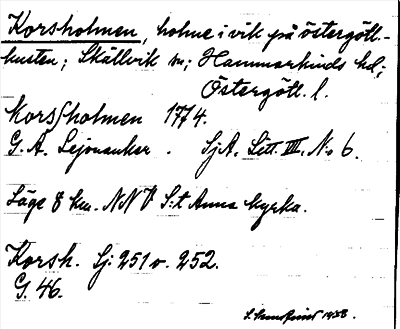 Korsholmen, holme i vik på östergötl.-
kusten; Skällvik sn; Hammarkinds hd;
Östergötl. l.
Korssholmen 1774.
G. A. Lejonanker. SjA. Litt. III. No 6.
Läge 8 km. NNV S:t Anna kyrka.
Korsh. Sj: 251 o. 252.
G. 46.
1938.